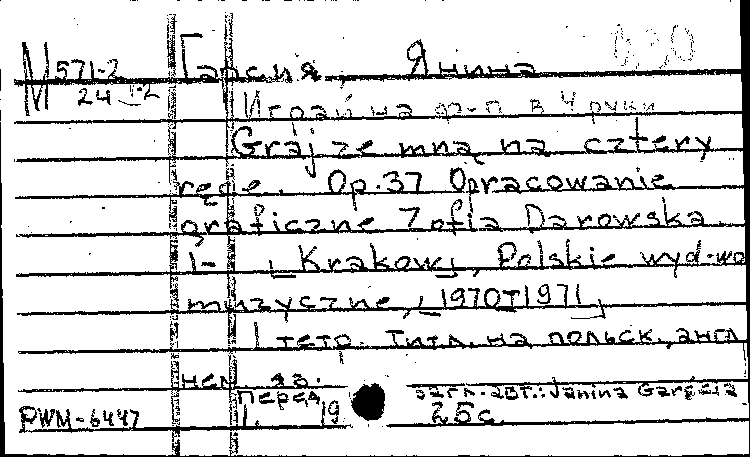 М 571-2 Гарсия, Янина 0,30
24 1-2
Играй на ф-п в 4 руки
Graj ze mną na cztery
ręce. Op. 37 Opracowanie
graficzne Zofia Darowska.
1- [Kraków], Polskie wyd-wo
muzyczne, [1970-1971]
1 тетр. Титл. на польск., англ
нем. яз.
Перед загл. авт.: Janina Garścia
PWM-6447 1. 19 25 с.